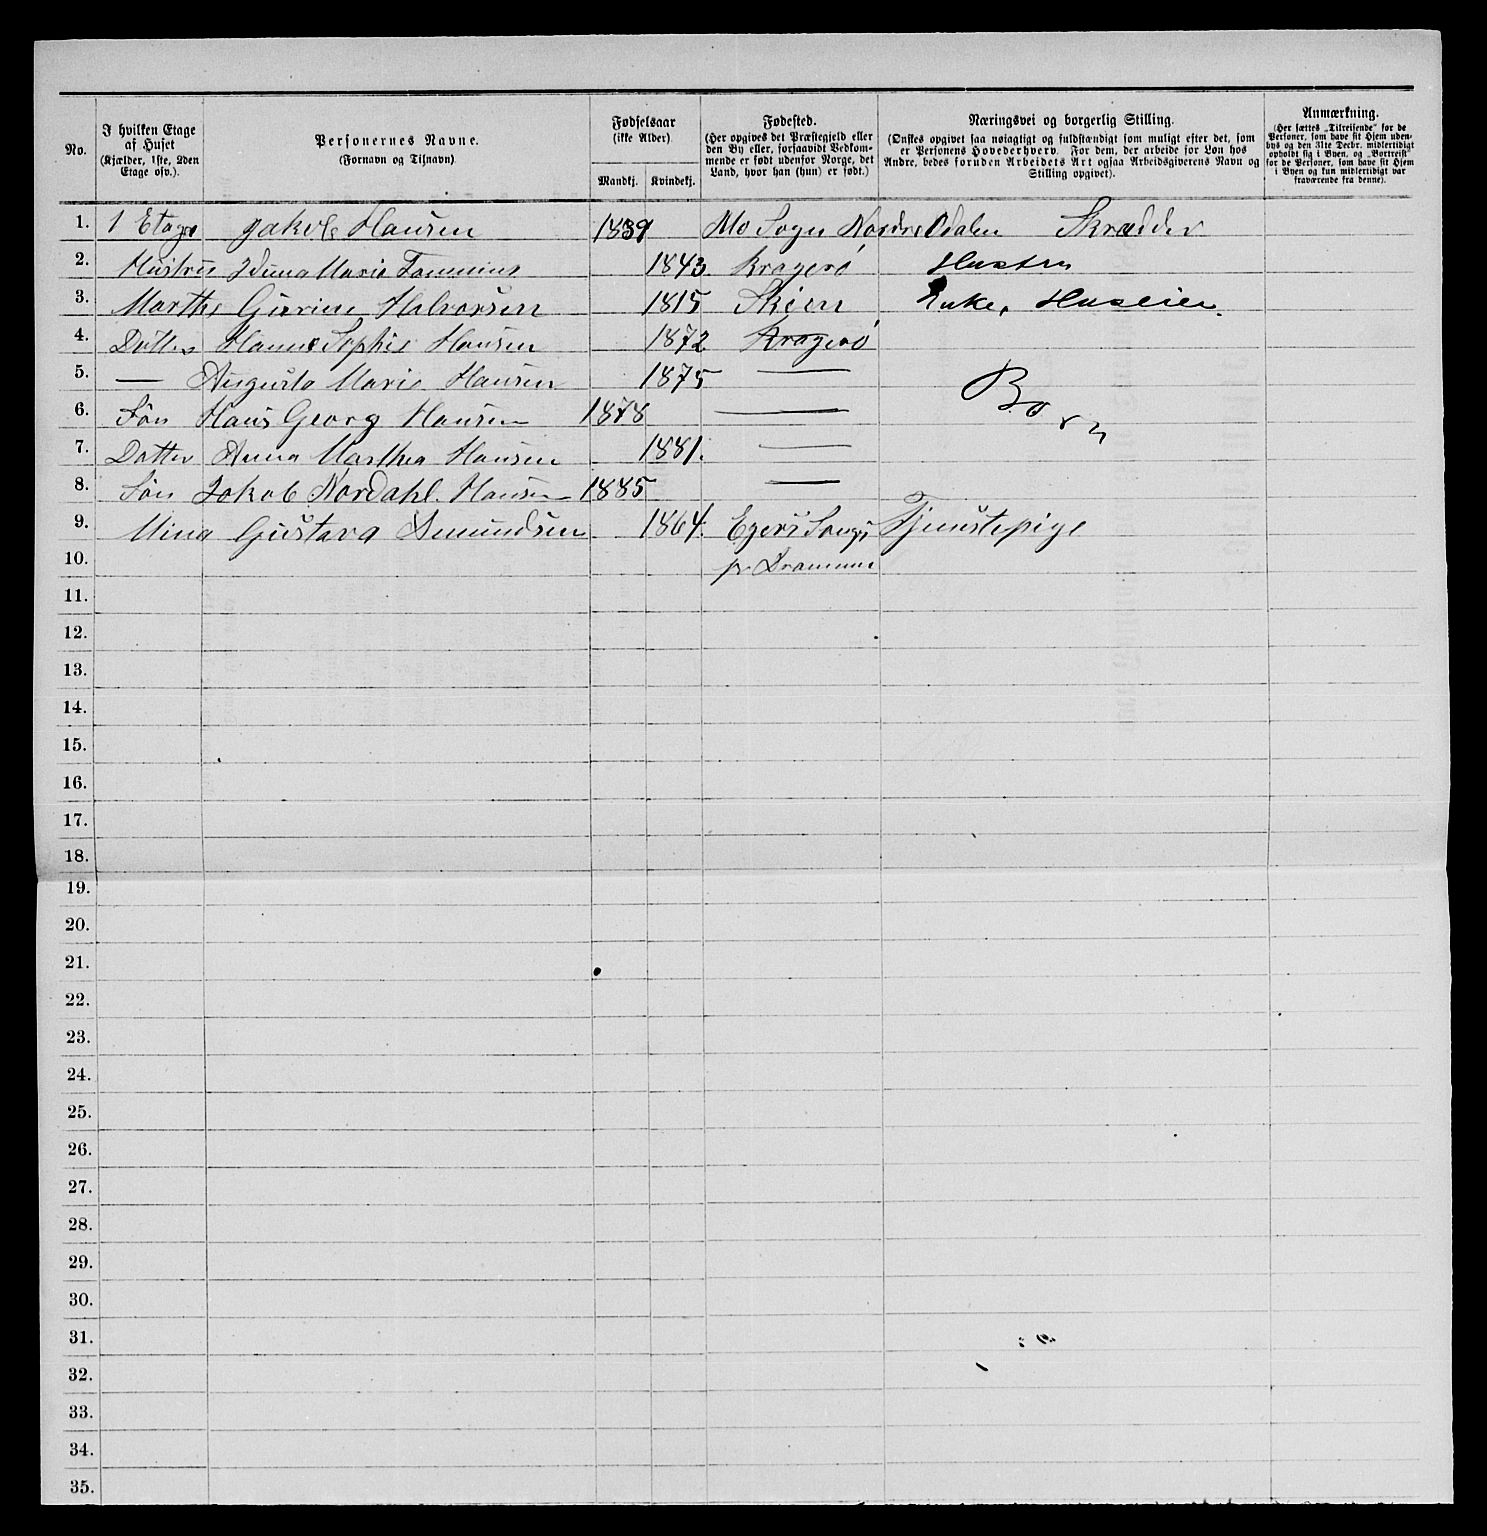 No.
I hvilken Etage af Huset (Kjælder, 1ste, 2den Etage osv.).
Personernes Navne. (Fornavn og Tilnavn)
Fødselsaar (ikke Alder)
Mandkj. Kvindekj.
Fødested. (Her opgives det Præstegjeld eller den By eller, forsaavidt Vedkommende er født udenfor Norge, det Land, hvor han (hun) er født.)
Næringsvei og borgerlig Stilling. (Ønskes opgivet saa nøiagtigt og fuldstændigt som muligt efter det, som er Personens Hovederhverv. For dem, der arbeide for Løn hos Andre, bedes foruden Arbeidets Art ogsaa Arbeidsgiverens Navn og Stilling opgivet).
Anmærkning. (Her sættes „Tilreisende“ for de Personer, som have sit Hjem udenbys og den 31te Decbr. midlertidigt opholdt sig i Byen, og „Bortreist“ for de Personer, som have sit Hjem i Byen og kun midlertidigt var fraværende fra denne).
1. 1 Etage Jakob Hansen 1839 Mo Sogn Nordre Odalen Skrædder
2. Hustru Iduna Marie 1843. Kragerø Hustru
3. Marthe Gurine Halvorsen 1815 Skien Enke, Huseier.
4. Datter Hanne Sophie Hansen 1872 Kragerø
5. — Augusta Marie Hansen 1875 —
6. Søn Hans Georg Hansen 1878 — Børn
7. Datter Anna Martha Hansen 1881. —
8. Søn Jakob Nordahl. Hansen 1885 —
9. Mina Gustava Amundsen 1864. Egers Sogn Tjenstepige
10. pr Drammen
11.
12.
13.
14.
15.
16.
17.
18.
19.
20.
21.
22.
23.
24.
25.
26.
27.
28.
29.
30.
31.
32.
33.
34.
35.